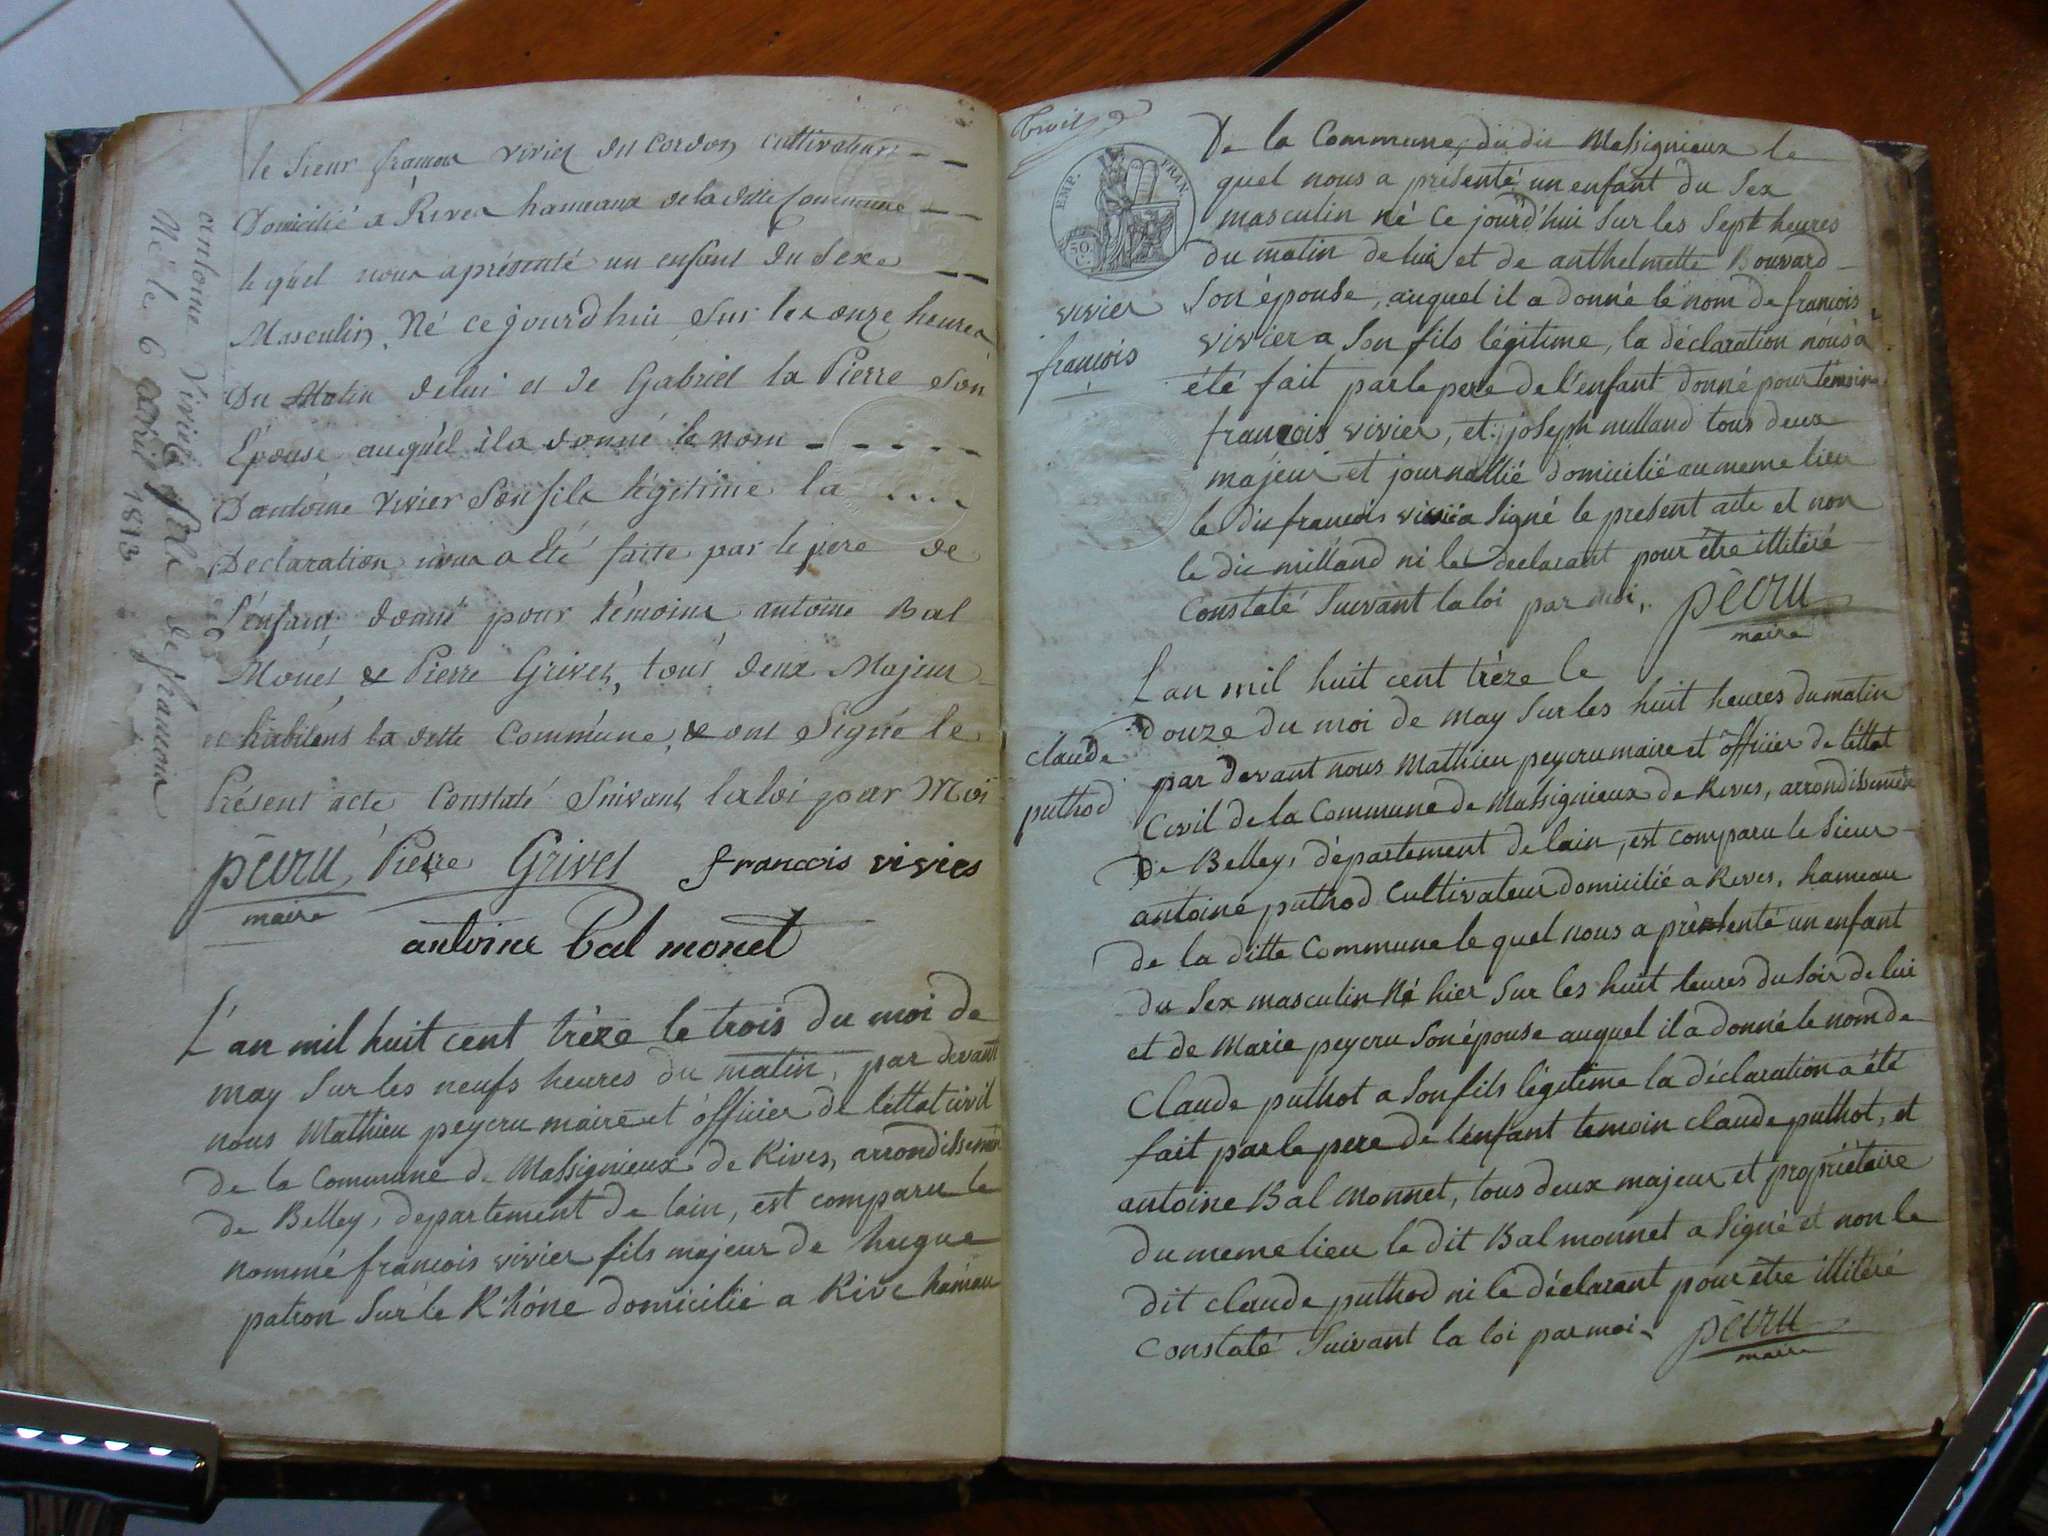 le Sieur francois vivier du Cordon cultivateur
Domicilié à Rives hameaux de la ditte Commune
le quel nous a présenté un enfant du Sexe
Masculin, Né ce jourd'hui Sur les onze heures
Du Matin delui et de Gabriel la Pierre Son
Epouse auquel il a donné le nom
D'antoine vivier Son fils légitime la
Declaration nous a Eté faitte par le pere de
l'enfant donné pour témoins antoine Bal
Monet & Pierre Grivet, tous deux Majeur
et habitens la ditte Commune, & ont Signé le
Présent acte Constaté Suivant la loi par Moi
pècru maire Pierre Grivet francois vivier
antoine bal monet
antoine Vivier fils de francois
Né le 6 avril 1813
L'an mil huit cent trèze le trois du moi de
may Sur les neufs heures du matin, par devant
nous Mathieu peycru maire et officier de l'éttat civil
de la Commune de Massignieux de Rives, arrondissement
de Belley, departement de lain, est comparu le
nommé francois vivier fils majeur de hugue
patron Sur le Rhône domicilié a Rive hameau
EMP. FRAN.
50 C.
vivier
francois
De la Commune du dit Massignieux le
quel nous a présenté un enfant du Sex
masculin né Ce jourd'hui Sur les Sept heures
du matin de lui et de anthelmette Bouvard
Son épouse, auquel il a donné le nom de francois
vivier a Son fils légitime, la déclaration nous a
été fait par le pere de l'enfant donné pour témoins
francois vivier, et joseph milland tous deux
majeur et journallié domicilié au meme lieu
le dit francois vivier a Signé le present acte et non
le dit milland ni le declarant pour être illitéré
Constaté Suivant la loi par moi, pècru
maire
claude
puthod
L'an mil huit cent trèze le
douze du moi de may Sur les huit heures du matin
par devant nous Mathieu peycru maire et officier de l'éttat
Civil de la Commune de Massignieux de Rives, arrondissement
De Belley, département de lain, est comparu le Sieur
antoine puthod Cultivateur domicilié a Rives, hameau
de la ditte Commune le quel nous a présenté un enfant
du Sex masculin Né hier Sur les huit heures du Soir de lui
et de Marie peycru Son épouse auquel il a donné le nom de
Claude puthot a Son fils légitime la déclaration a été
fait par le pere de l'enfant temoin claude puthot, et
antoine Bal Monnet, tous deux majeur et propriétaire
du meme lieu le dit Bal monnet a Signé et non le
dit claude puthod ni le déclarant pour être illitéré
Constaté Suivant la loi par moi, pècru
maire